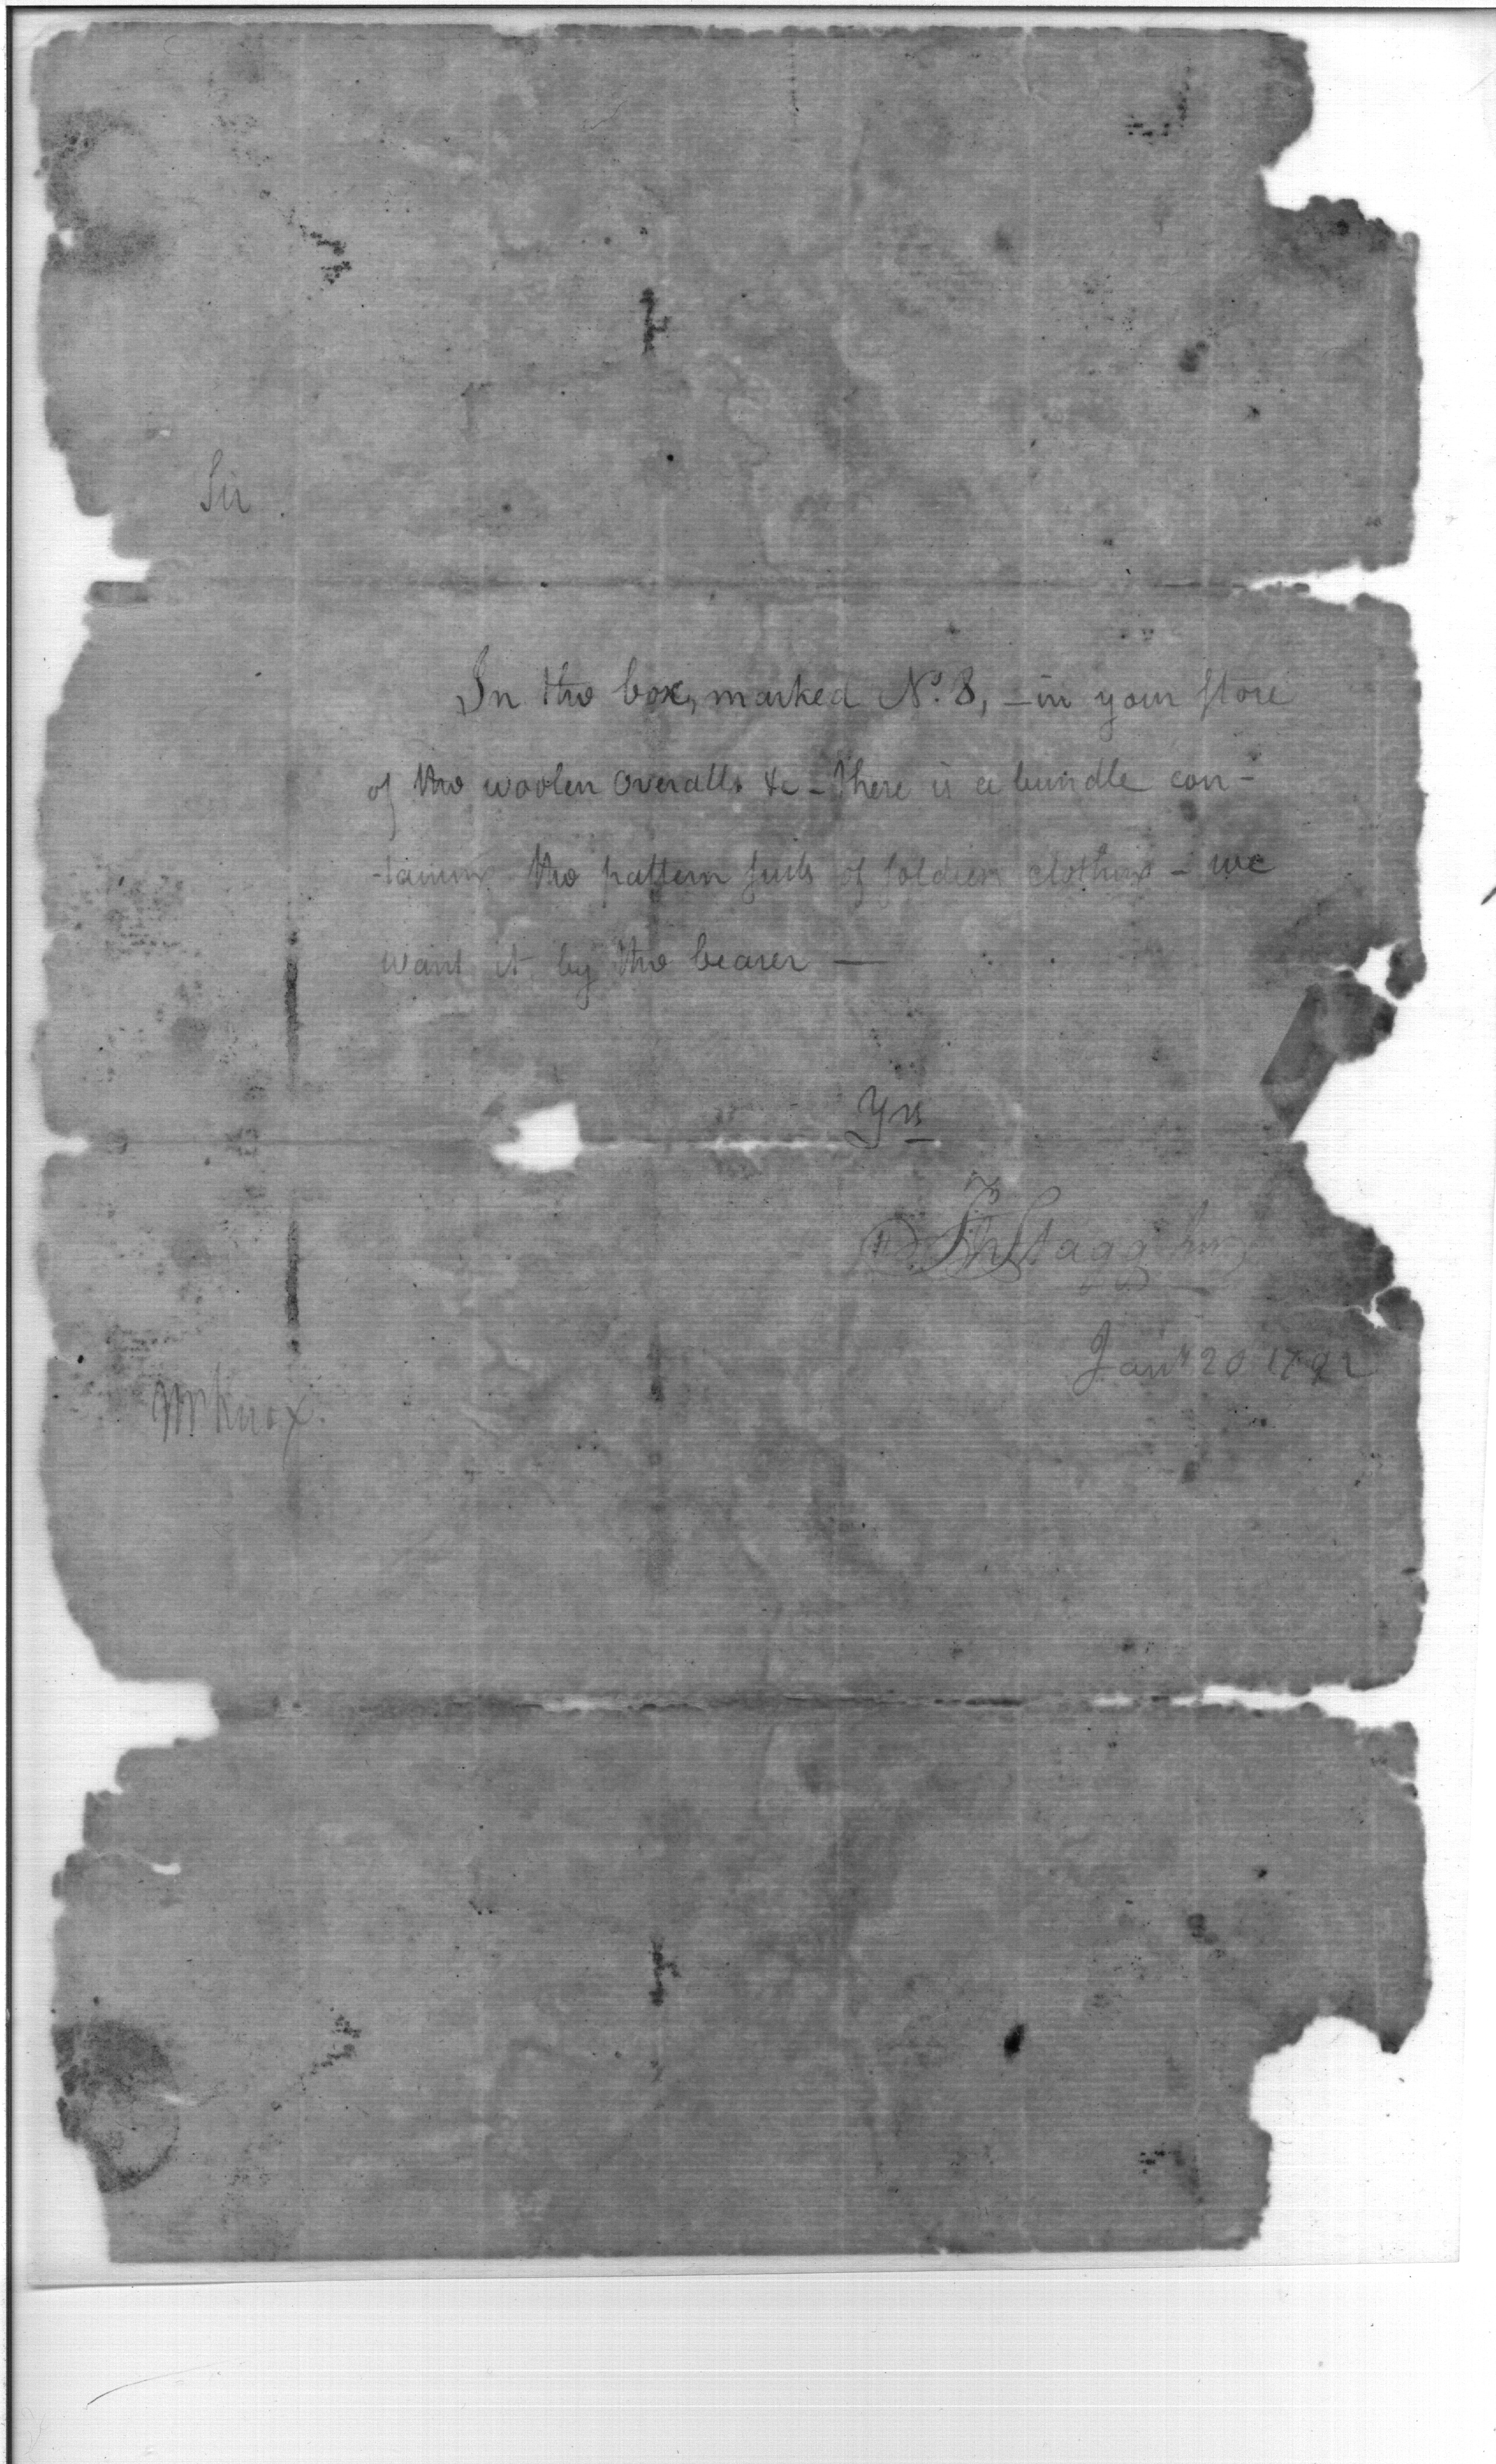 Sir
In the box, marked No. 8, - in your store
of the woolen overalls &c - there is a bundle con-
-taining the pattern suits of soldiers clothing - we
want it by the bearer —
Yrs
Jn Stagg Junr
Jany 20 1792
Mr Knox